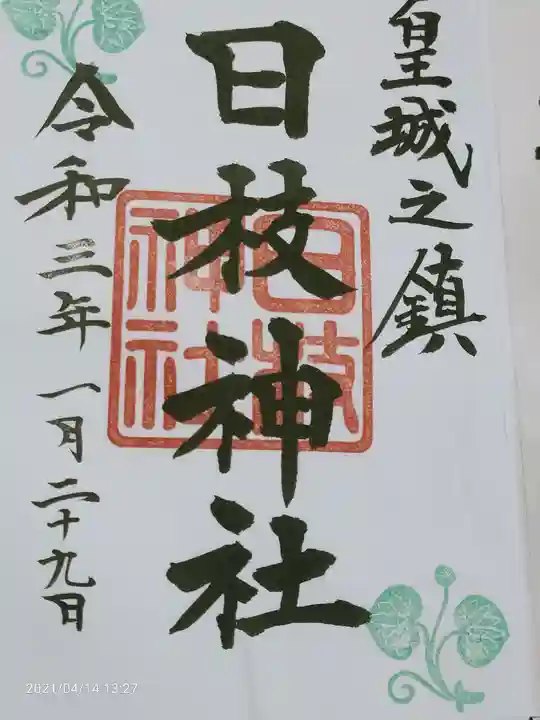 皇城之鎮
日枝神社
日枝神社
令和三年一月二十九日
2021/04/14 13:27